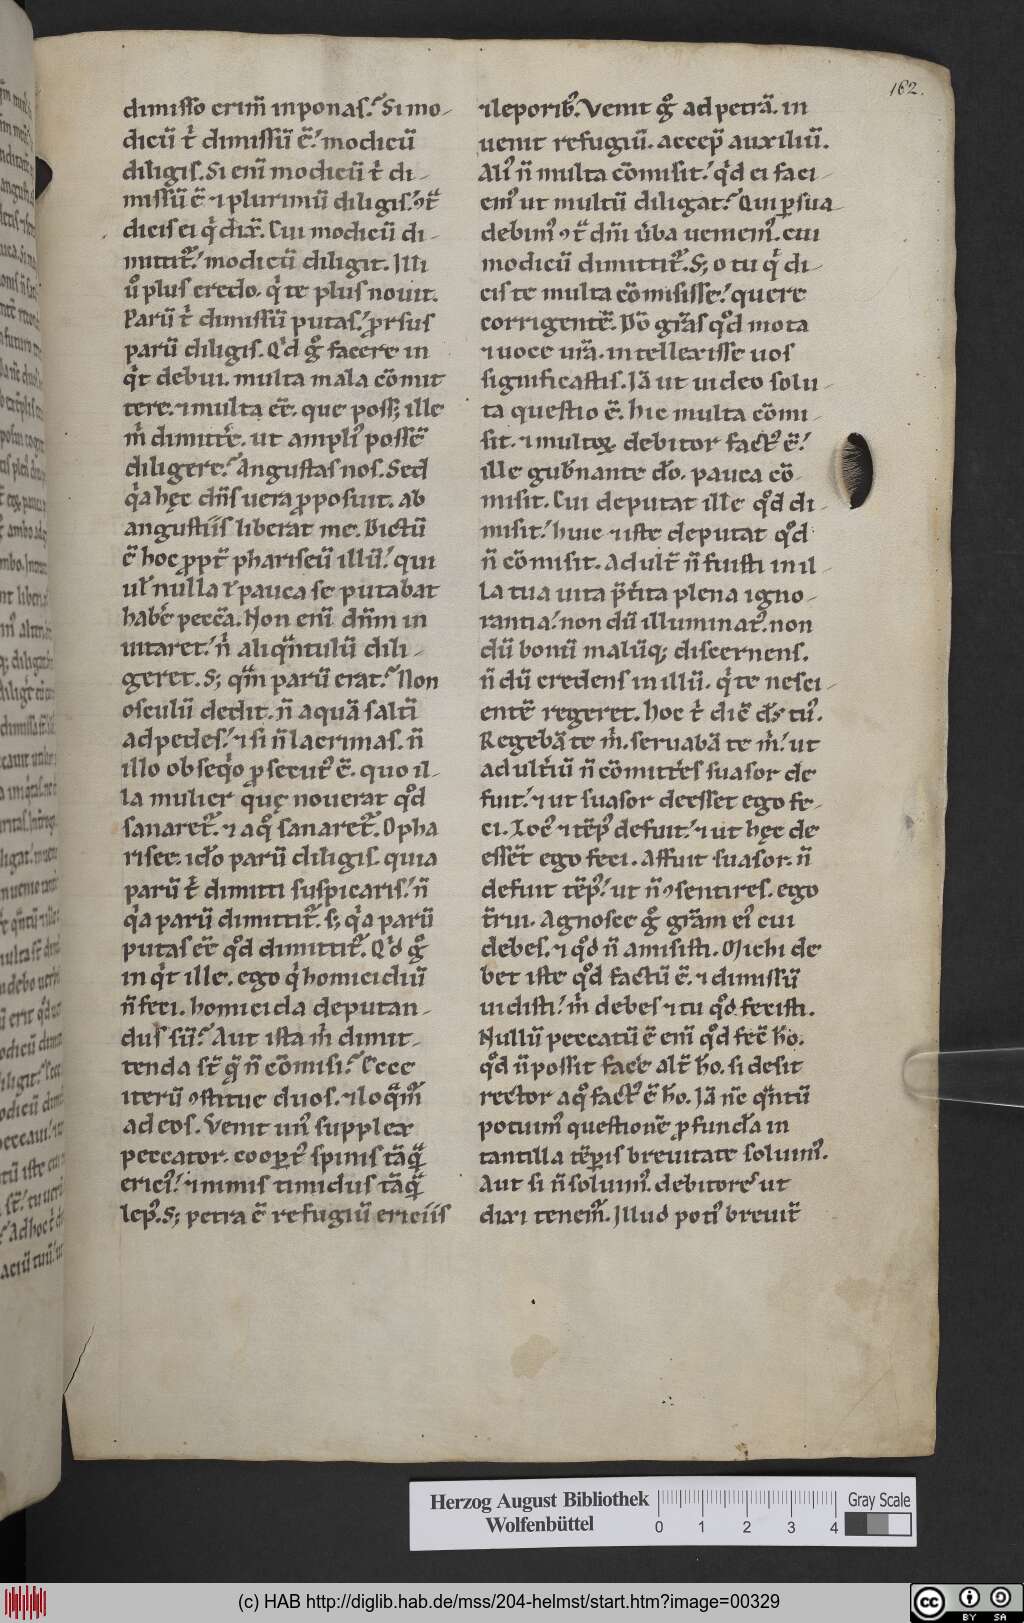 162.
dimisso crim̄ inponas. Si mo-
dicū t̓ dimissū ē. modicū
diligis. Si eni modicū t̓ di-
missū ē ⁊ plurimū diligis. ꝯt̄
dicis ei q̓ dix̄. Cui modicū di-
mittit᷑. modicū diligit. Illi
ū plus credo. q̓ te plus nouit.
Parū t̓ dimissū putas. ꝓrsus
parū diligis. Q'd g̊ facere in
q̓t debui. multa mala cōmit
tere. ⁊ multa eē. que poss; ille
m̓ dimitt̓e. ut ampliꝰ possē
diligere. Angustas nos. Sed
q̓a hęc dn̄s uera ꝓposuit. ab
angustiis liberat me. Dictū
ē hoc ꝓpt̄ phariseū illū. qui
ul̓ nulla l̓ pauca se putabat
hab̓e peccā. Non eni dn̄m in
uitaret. n̓ aliqn̄tulū dili-
geret. S; qm̄ parū erat. Non
osculū dedit. n̄ aquā saltī
ad pedes. ⁊ si n̄ lacrimas. n̄
illo obseq̓o ꝓsecutꝰ ē. quo il-
la mulier quę nouerat qd̊
sanaret᷑. ⁊ a q̊ sanaret᷑. O pha
risee. iđo parū diligis. quia
parū t̓ dimitti suspicaris. n̄
q̓a parū dimittit᷑. s; q̓a parū
putas eē qd̊ dimittit᷑. Q'd g̊
in q̓t ille. ego q̓ homicidiū
n̄ feci. homicida deputan-
dus sū. Aut ista m̓ dimit-
tenda st̄ q̄ n̄ cōmisi. Ecce
iterū ꝯstitue duos. ⁊ loq̄m᷑
ad eos. Venit unꝰ supplex
peccator. coopt̓ꝰ spinis tāq̄
ericiꝰ. ⁊ nimis timidus tāq̄
lepꝰ. S; petra ē refugiū ericiis
⁊ leporibꝰ. Venit g̊ ad petrā. in
uenit refugiū. accep̄ auxiliū.
Aliꝰ n̄ multa cōmisit. q̓d ei faci-
emꝰ ut multū diligat. Qui ꝑsua-
debimꝰ ꝯt̄ dn̄i u̓ba ueniemꝰ. cui
modicū dimittit᷑. S; o tu q̓ di-
cis te multa cōmisisse. quere
corrigentē. Dō gr̄as qd̊ mota
⁊ uoce ur̄a. intellexisse uos
significastis. Iā ut uideo solu-
ta questio ē. hic multa cōmi-
sit. ⁊ multoꝝ debitor factꝰ ē.
ille gub̄nante đo. pauca cō-
misit. Cui deputat ille qd̊ di-
misit. huic ⁊ iste deputat qd̊
n̄ cōmisit. Adult̄ n̄ fuisti in il-
la tua uita p̄t̓ita plena igno-
rantia. non dū illuminatꝰ. non
dū bonū malūq; discernens.
n̄ dū credens in illū. q̓ te nesci-
entē regeret. hoc t̓ dic̄ đs tuꝰ.
Regebā te m̓. seruabā te m̓. ut
adult̓iū n̄ cōmitt̓es suasor de
fuit. ⁊ ut suasor deesset ego fe-
ci. Locꝰ ⁊ tēpꝰ defuit. ⁊ ut hęc de
essēt ego feci. Affuit suasor. n̄
defuit tēpꝰ. ut n̄ ꝯsentires. ego
t̄rui. Agnosce g̊ gr̄am eiꝰ cui
debes. ⁊ qd̊ n̄ amisisti. Michi de
bet iste qd̊ factū ē. ⁊ dimissū
uidisti. m̓ debes ⁊ tu qd̊ fecisti.
Nullū peccatū ē eni qd̊ fec̄ h̄o.
qd̊ n̄ possit fac̓e alt̄ h̄o. si desit
rector a q̊ factꝰ ē h̄o. Iā nc̄ qn̄tū
potuimꝰ questionē ꝓfundā in
tantilla tēporis breuitate soluimꝰ.
Aut si n̄ soluimꝰ. debitores ut
dixi tenem᷑. Illud potiꝰ breuit̄
Herzog August Bibliothek
Wolfenbüttel
0 1 2 3 4
Gray Scale
(c) HAB http://diglib.hab.de/mss/204-helmst/start.htm?image=00329
cc BY SA